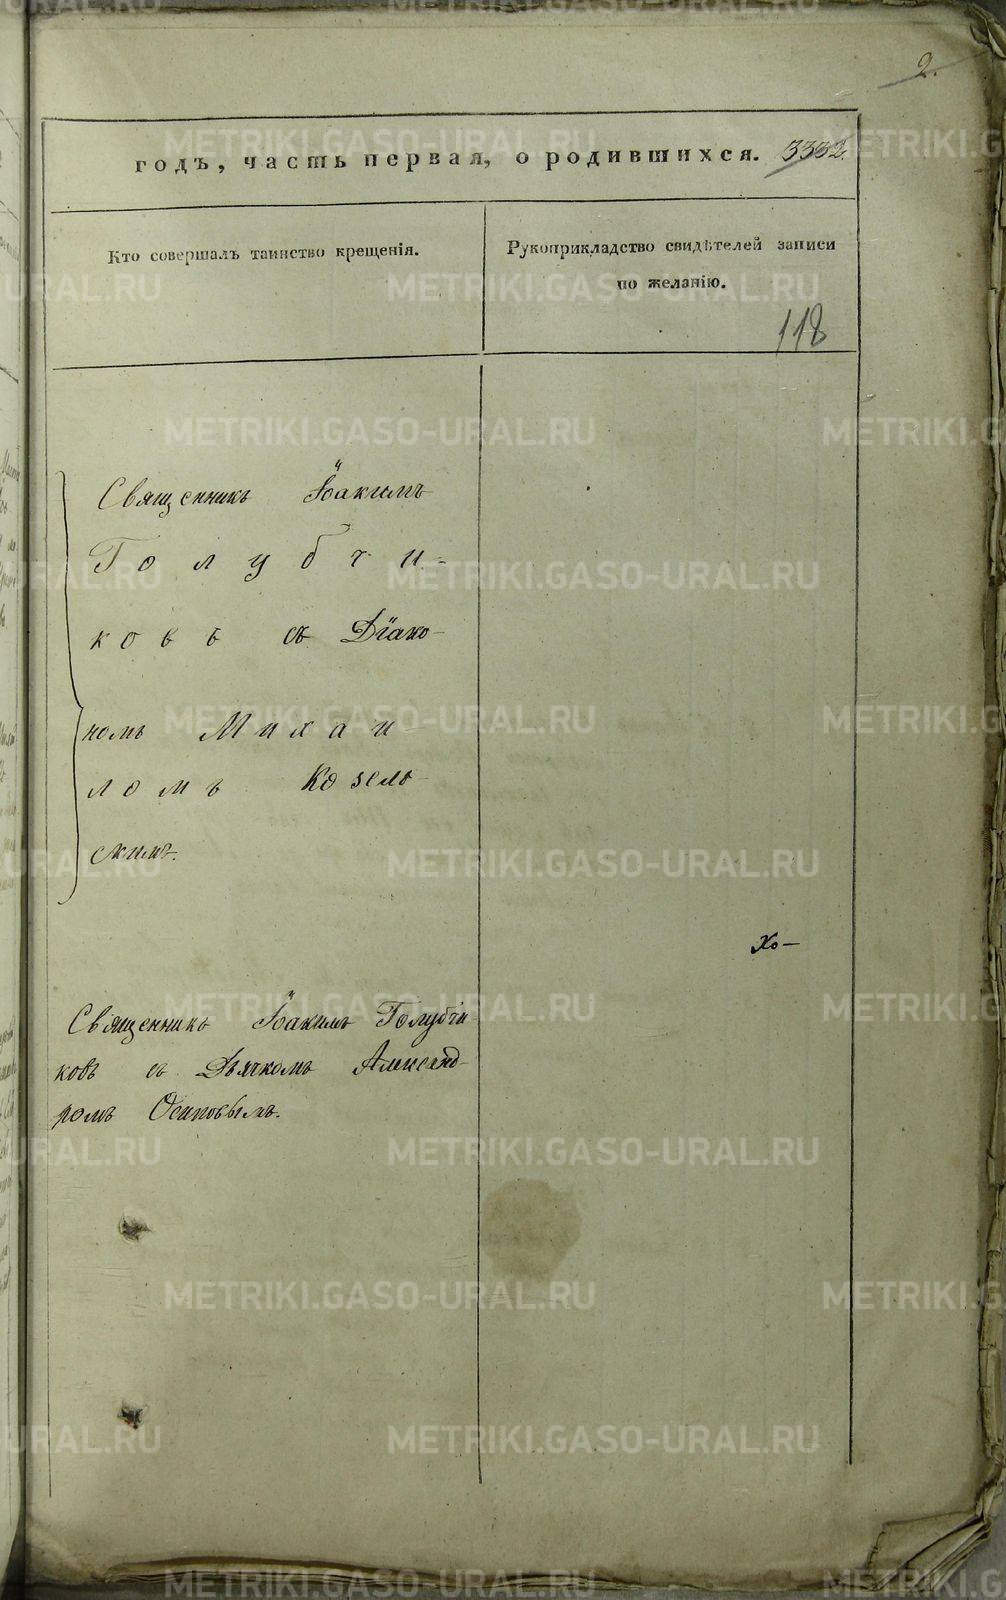 2.
годъ, часть первая, о родившихся. 3332.
Кто совершалъ таинство крещенія.
Рукоприкладство свидѣтелей записи
по желанію.
118
Священникъ Іоакимъ
Голубчи-
ковъ съ Діако-
номъ Михаи-
ломъ Козель-
скимъ.
Хо-
Священникъ Іоакимъ Голубчи
ковъ съ Дьячкомъ Александ-
ромъ Осиповымъ.
METRIKI.GASO-URAL.RU